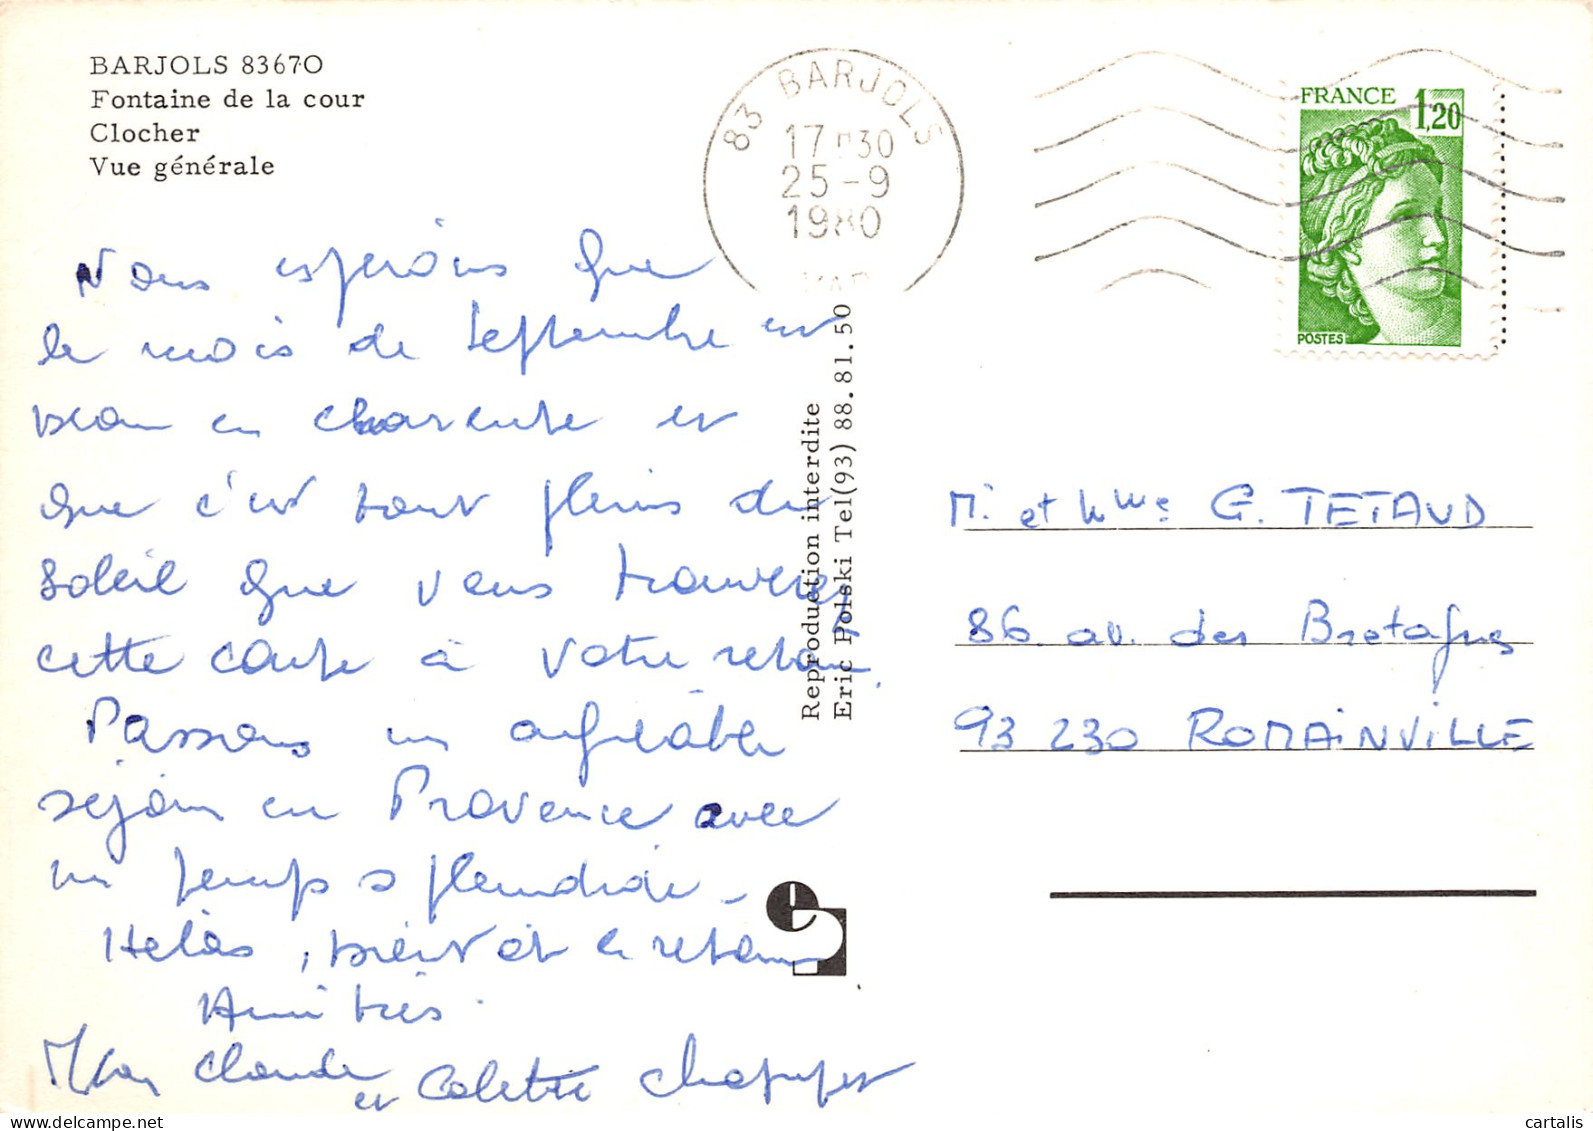 BARJOLS 83670
Fontaine de la cour
Clocher
Vue générale
83 BARJOLS
17H30
25-9
1980
VAR
FRANCE 1,20
POSTES
Nous espérons que
le mois de Septembre est
beau en charente et
que c'est tout pleins du
soleil que vous trouverez
cette carte à votre retour.
Passons un agréable
séjour en Provence avec
un temps splendide -
Hélas, bientôt le retour
Amitiés.
Claude
et Colette
Reproduction interdite
Eric Polski Tel(93) 88.81.50
Mr et Mme G. TETAUD
86 av. des Bretagnes
93 230 ROMAINVILLE
www.delcampe.net
cartalis